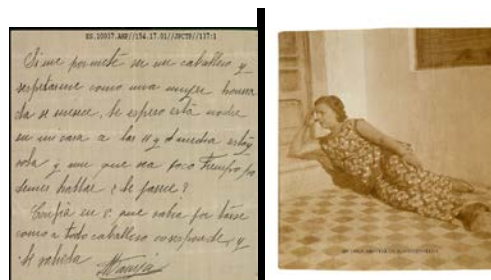 ES.10037.AHP//154.17.01//JPCTP//137:1
Si me promete ser un caballero y
respetarme como una mujer honra
da se merece, le espero esta noche
en mi casa a las 11 y media estoy
sola y aun que sea poco tiempo po
demos hablar ¿le parece?
Confio en V. que sabra portarse
como a todo caballero corresponde, y
le saluda